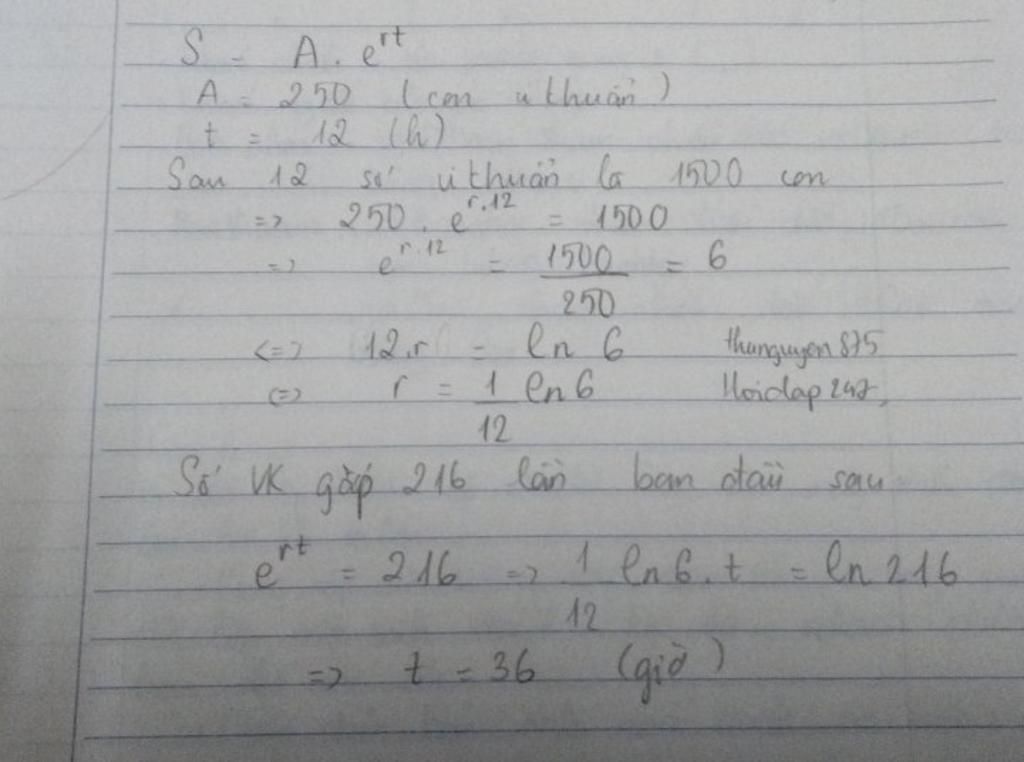 S = A . e^rt
A = 250 (con vi khuẩn)
t = 12 (h)
Sau 12 số vi khuẩn là 1500 con
=> 250 . e^r.12 = 1500
=> e^r.12 = 1500/250 = 6
<=> 12.r = ln 6 thunguyen875
<=> r = 1/12 ln 6 Hoidap247
Số VK gấp 216 lần ban đầu sau
e^rt = 216 => 1/12 ln 6 . t = ln 216
=> t = 36 (giờ)